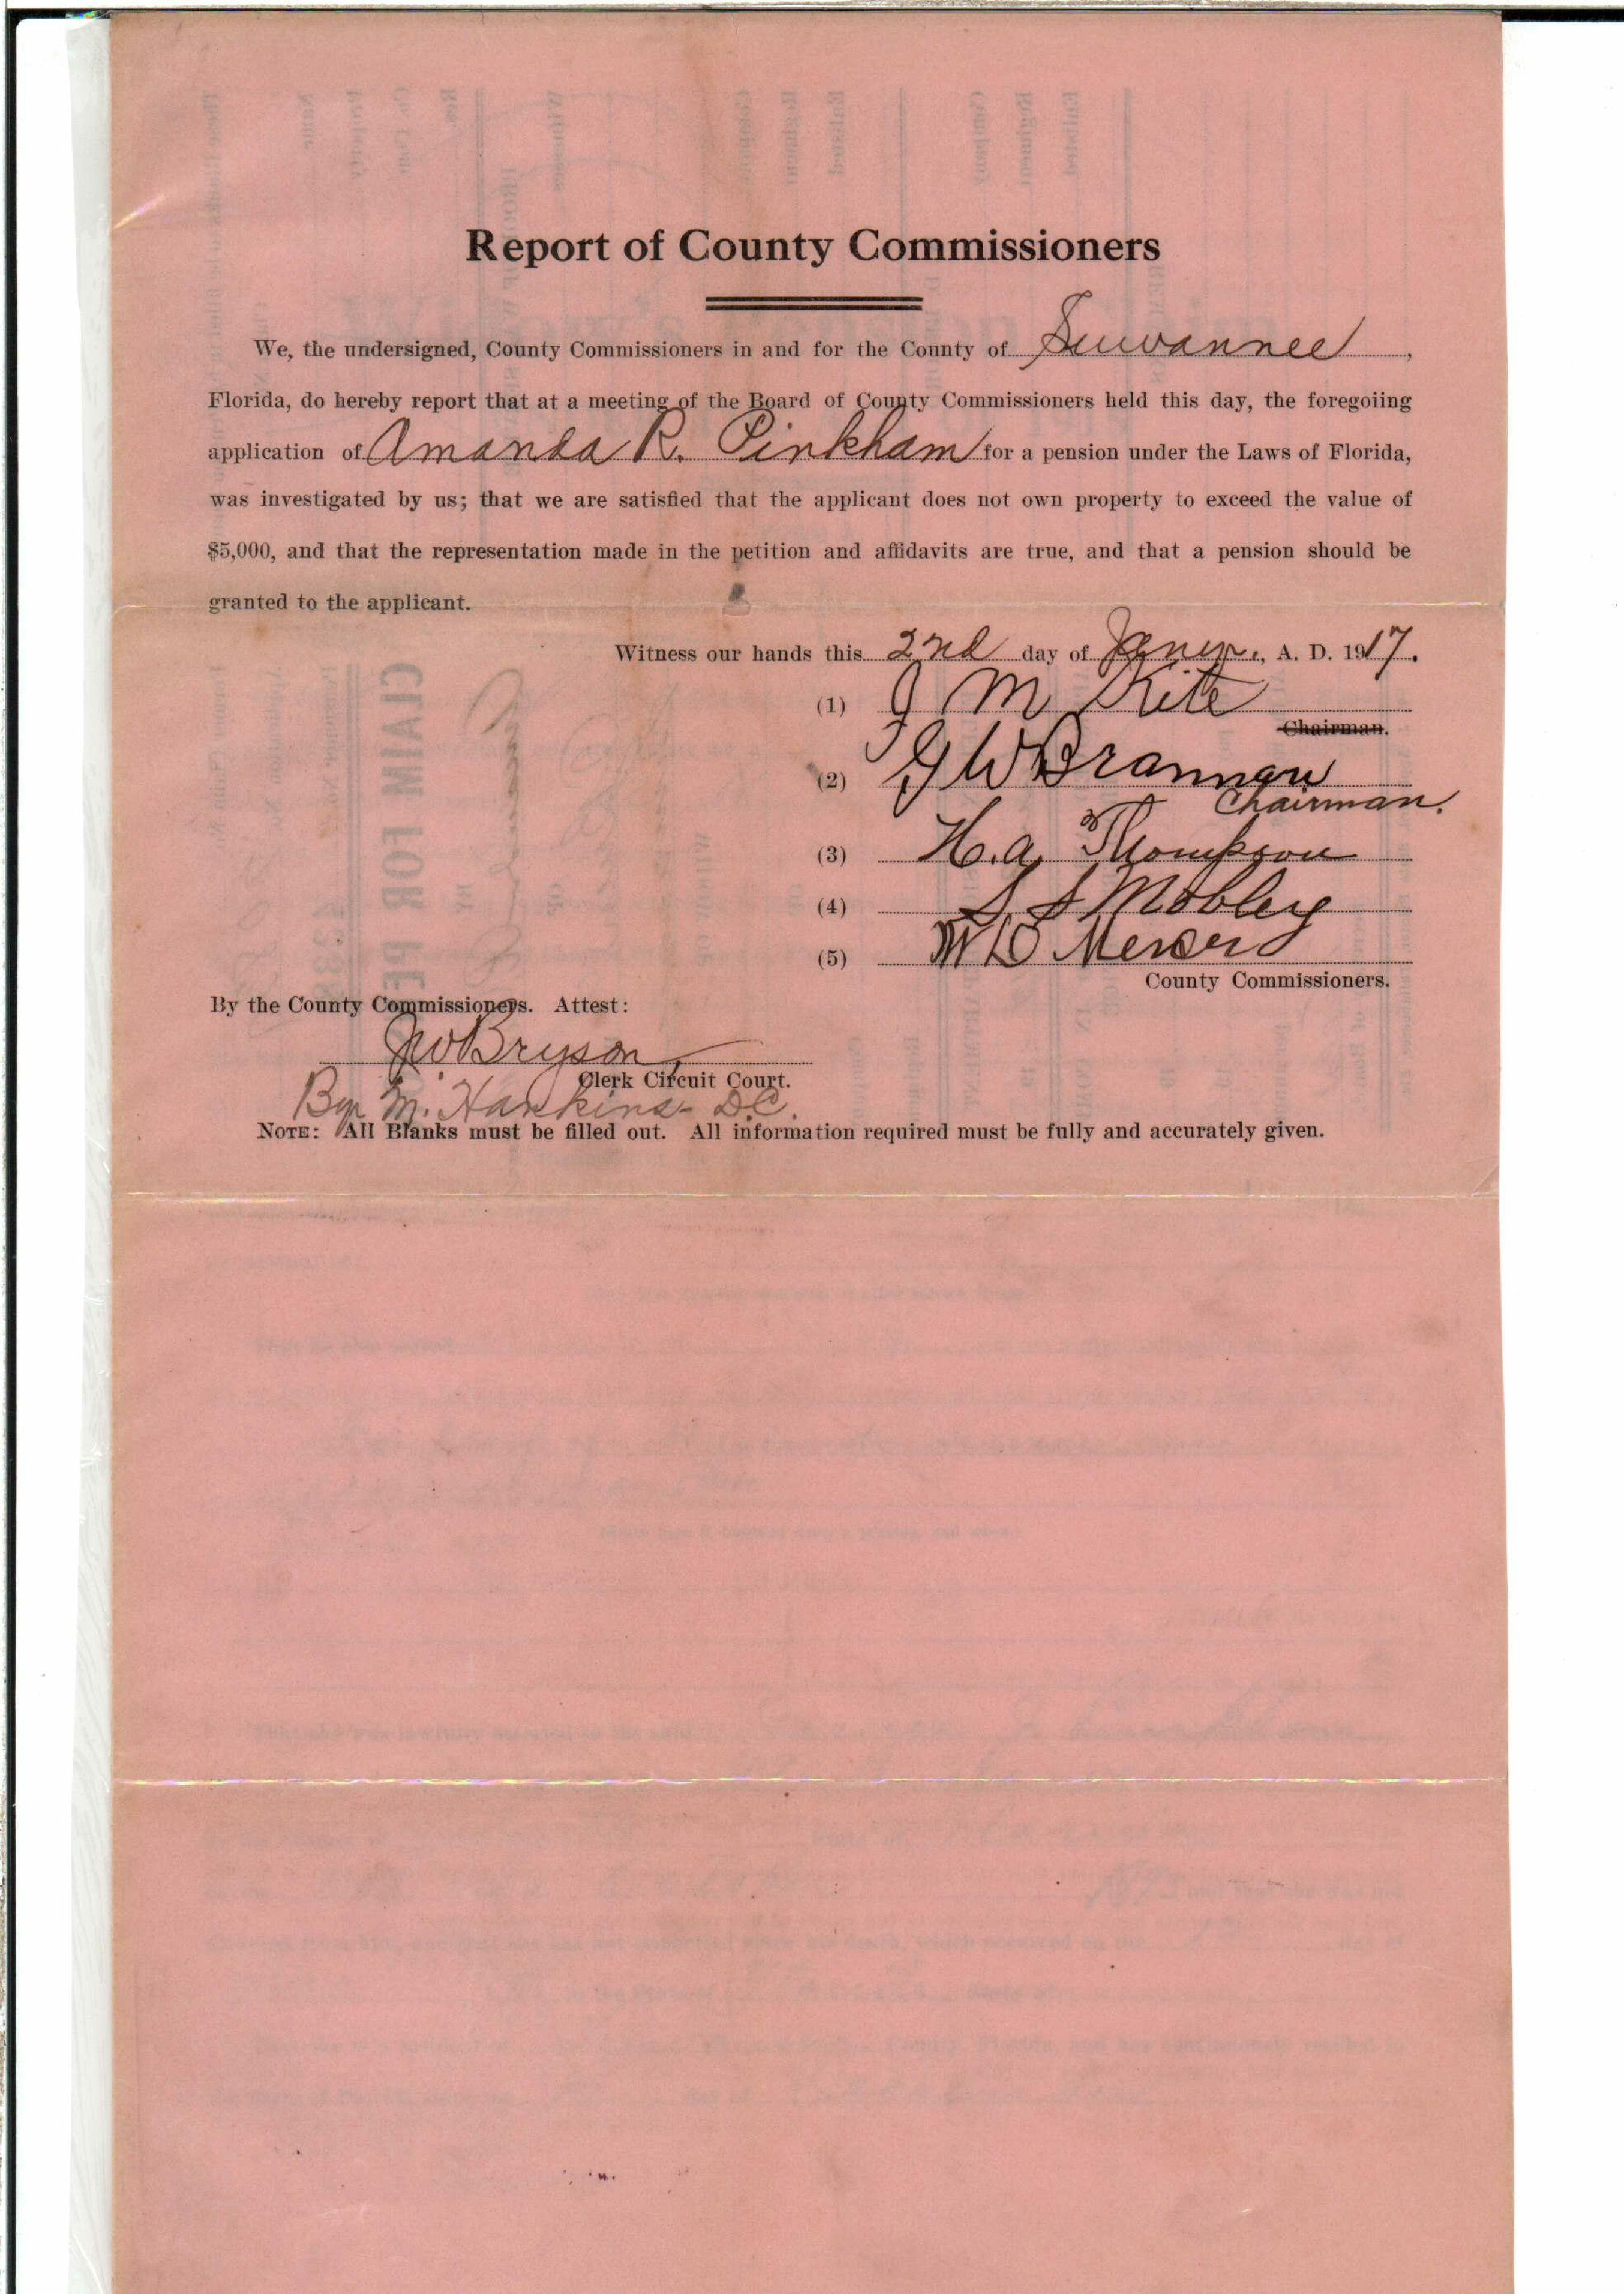 Report of County Commissioners
We, the undersigned, County Commissioners in and for the County of Suwannee,
Florida, do hereby report that at a meeting of the Board of County Commissioners held this day, the foregoiing
application of Amanda R. Pinkham for a pension under the Laws of Florida,
was investigated by us; that we are satisfied that the applicant does not own property to exceed the value of
$5,000, and that the representation made in the petition and affidavits are true, and that a pension should be
granted to the applicant.
Witness our hands this 2nd day of A. D. 1917.
(1) J M Kite
Chairman.
(2) G W Brannan
Chairman.
(3) H. A. Thompson
(4) S S Mobley
(5) W D Mercer
County Commissioners.
By the County Commissioners. Attest:
J W Bryson
Clerk Circuit Court.
By M. Hankins D.C.
NOTE: All Blanks must be filled out. All information required must be fully and accurately given.